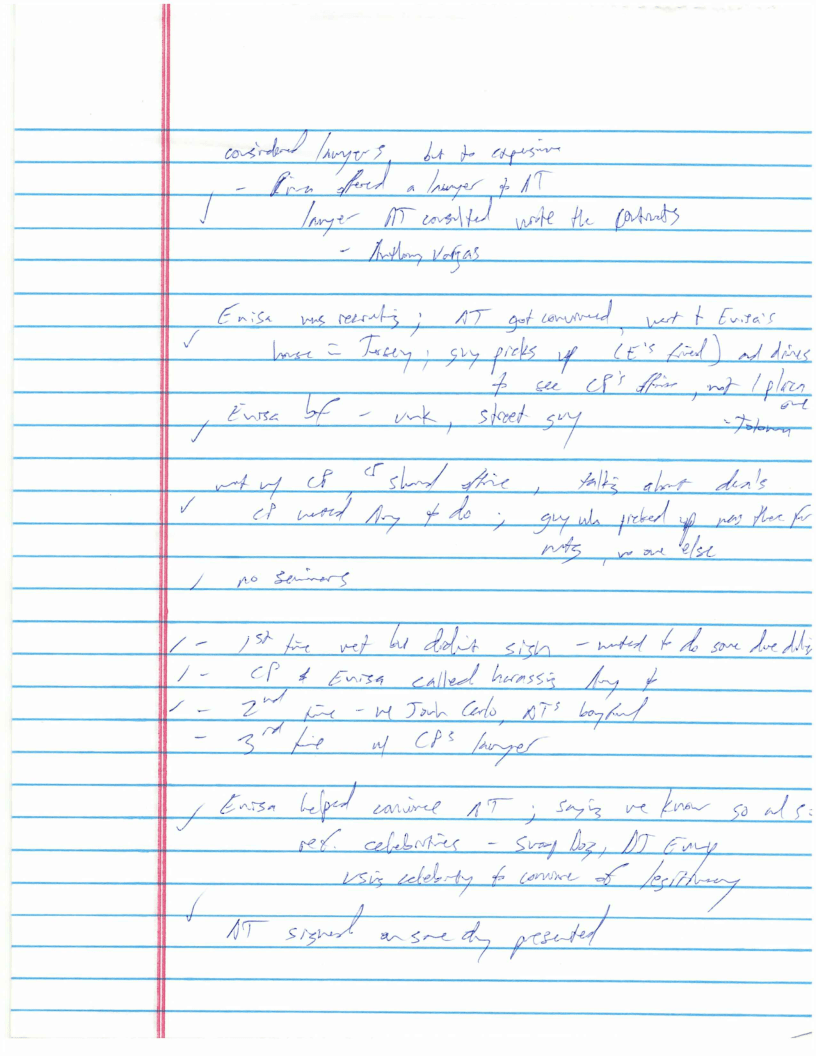 considered lawyers, but to expensive
- offered a lawyer to AT
lawyer AT consulted wrote the contracts
- Anthony Vargas
Enisa was recruiting; AT got convinced, went to Enisa's
house = Jersey; guy picks up (E's friend) and drives
to see CP's office, not 1 place
one
Enisa bf - unk, street guy
met w/ CP, CP shared office, talking about deals
CP wanted Amy to do; guy who picked up was there for
mtg, no one else
no seminars
- 1st time met but didn't sign - wanted to do some due dili
- CP & Enisa called harassing Amy
- 2nd time - w/ Josh Carlo, AT's boyfriend
- 3rd time w/ CP's lawyer
Enisa helped convince AT; saying we know so and s
ref. celebrities - Snoop Dog, DJ Envy
using celebrity to convince of legitimacy
AT signed on same day presented